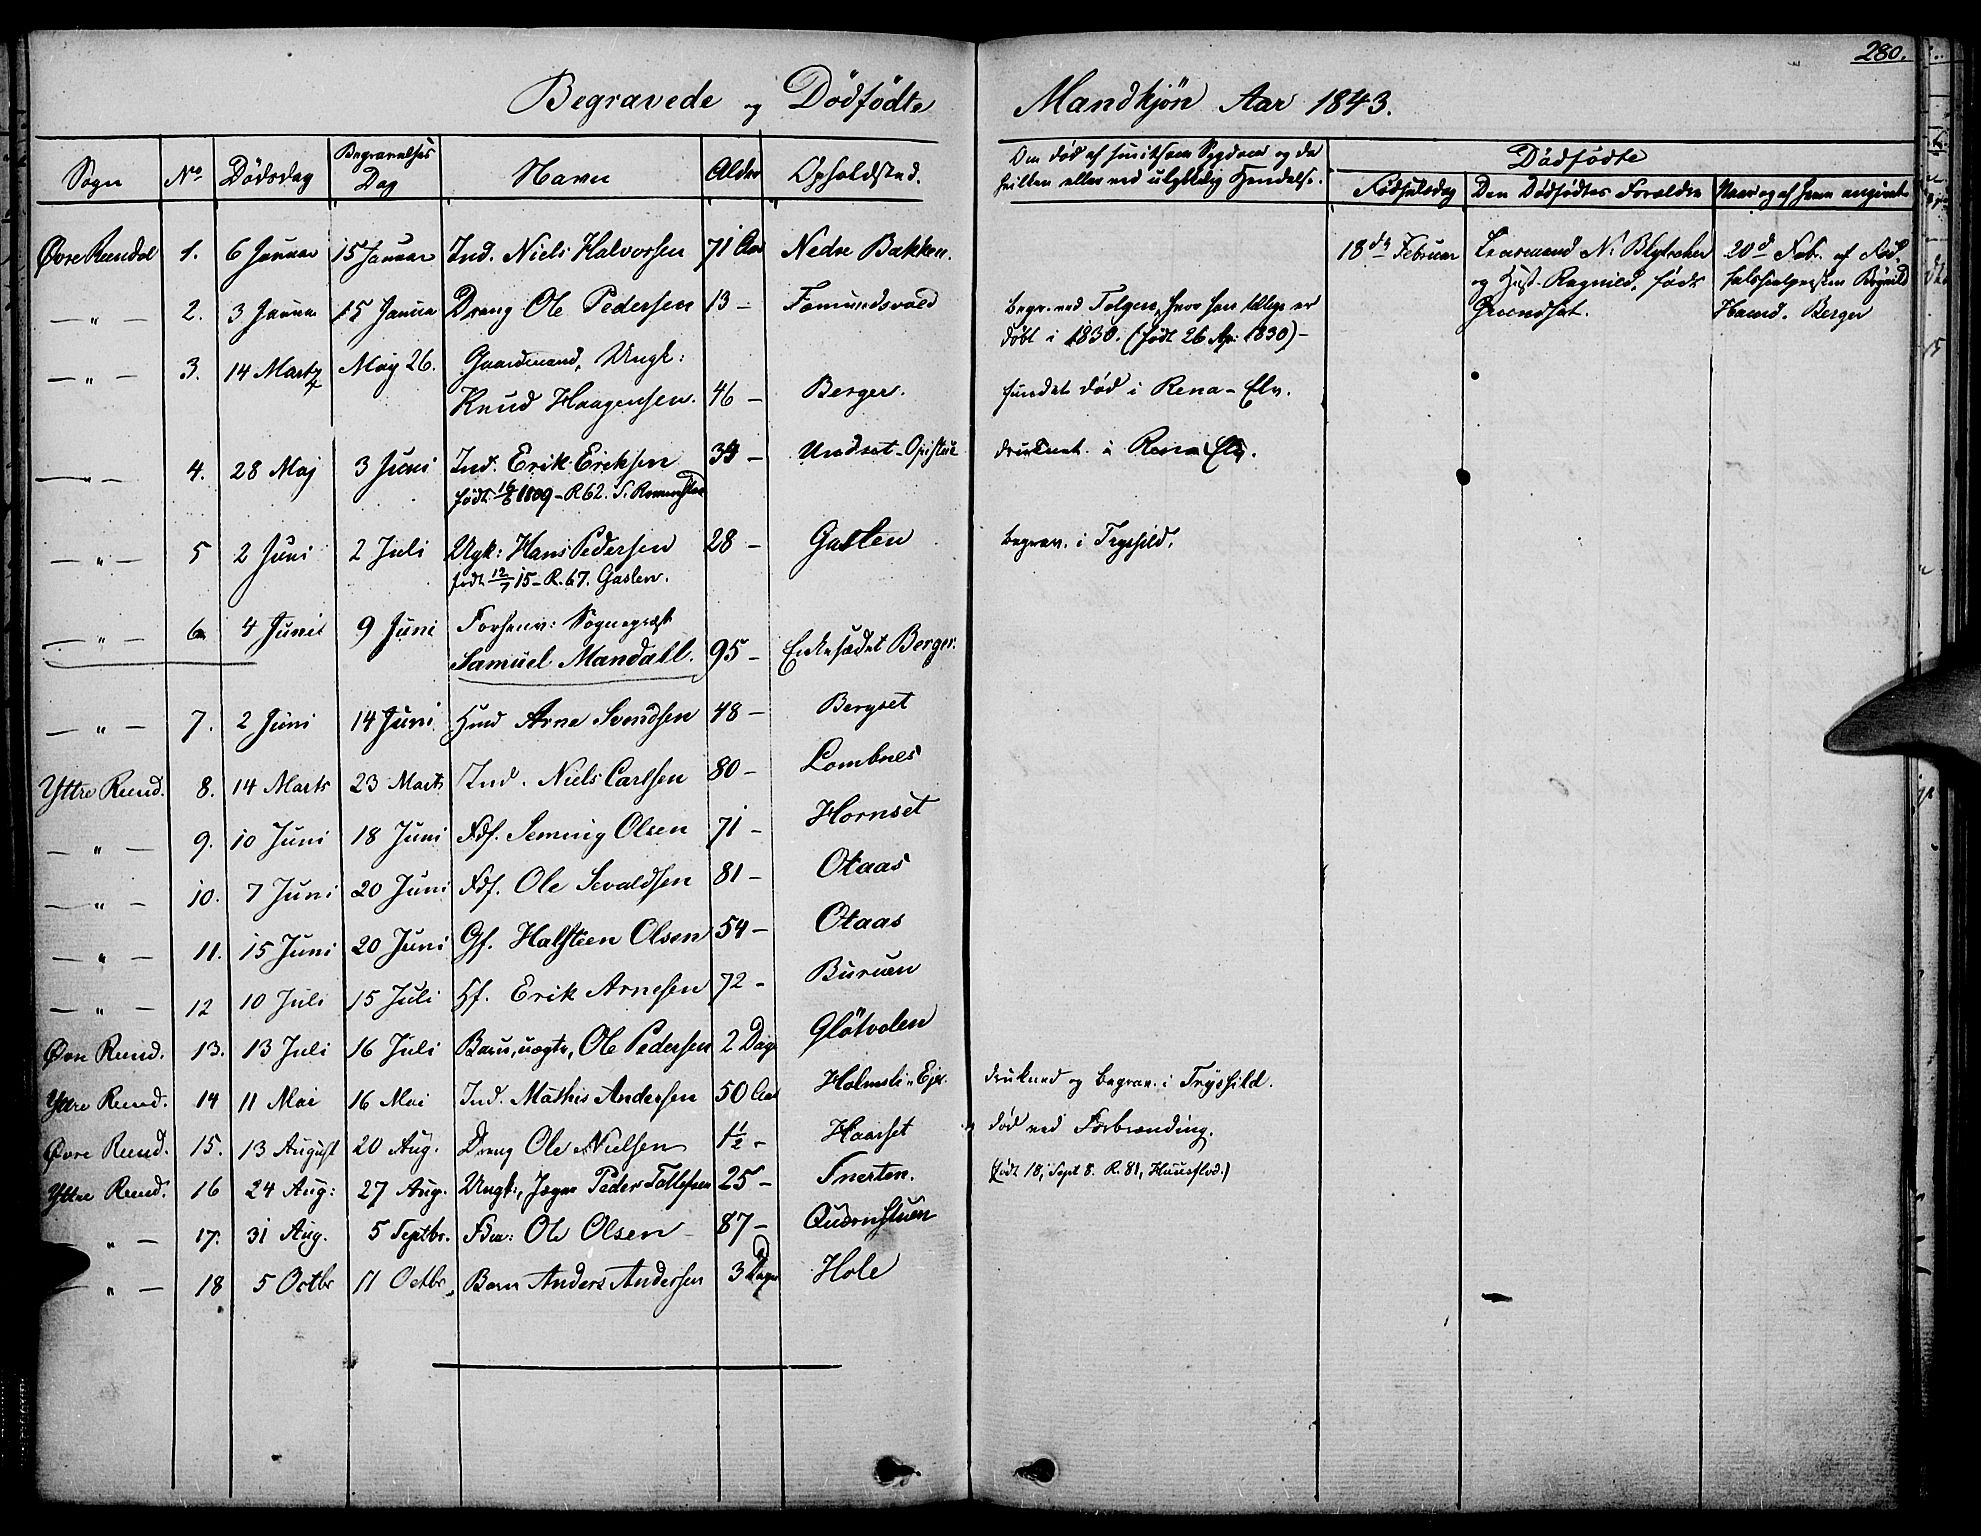 280.
Begravede og Dödfödte Mandkjön Aar 1843.
Sogn No Dödsdag Begravelses Dag Navn Alder Opholdsted. Om død af smitsom Sygdom og da hvilken eller ved ulykkelig Hændelse. Dødfødte
Födselsdag Den Dødfødtes Forældre Naar og af hvem angivet
Øvre Rendal 1. 6 Januar 15 Januar Ind. Niels Halvorsen 71 Aar Nedre Bakken. 18de Februar
og Hust. Ragnild, föds
Grundset.
20d Febr. af
Berger
— " — 2. 3 Januar 15 Januar Dreng Ole Pedersen 13 — Fæmundsvold Begr. ved Tolgen, hvor han tillige er
døbt i 1830. (født 26 Apr. 1830) —
— " — 3. 14 Marts May 26. Gaardmand, Ungk:
Knud Haagensen. 46 — Berger. fundet død i Rena-Elv.
— " — 4. 28 Maj 3 Juni Ind. Erik Eriksen 34 — Undset druknet i Rena Elv.
født 16/6 1809 — R 62.
— " — 5 2 Juni 2 Juli Ugk: Hans Pedersen 28 — Gaslen begrav. i Trysild.
født 12/7 15 — R. 67. Gaslen.
— " — 6 4 Juni 9 Juni Forhenv: Sognepræst
Samuel Mandall. 95 — Enkesædet Berger.
— " — 7. 2 Juni 14 Juni Arne Svendsen 48 — Bergset
Yttre Rend. 8. 14 Marts 23 Marts Ind. Niels Carlsen 80 — Lombnes
— " — 9. 10 Juni 18 Juni Fdf. Semmig Olsen 71 — Hornset
— " — 10. 7 Juni 20 Juni Fdf. Ole Sevaldsen 81 — Otaas
— " — 11. 15 Juni 20 Juni Gf. Halsteen Olsen 54 — Otaas
— " — 12 10 Juli 15 Juli Hf. Erik Arnesen 72 — Buruen
Øvre Rend. 13. 13 Juli 16 Juli Barn, uægte, Ole Pedersen 2 Dage Glötvolen
Yttre Rend. 14 11 Mai 16 Mai Ind. Mathis Andersen 50 Aar Holmsli-Ejer. druknede og begrav. i Trysild.
Øvre Rend. 15. 13 August 20 Aug. Dreng Ole Nielsen 1½ — Haarset død ved Forbrænding.
Yttre Rend. 16 24 Aug: 27 Aug. Ungk:, Jæger Peder Tollefsen 25 — Snerten. (født 18, Sept 8. R. 81,
" — 17. 31 Aug. 5 Septbr. Ole Olsen 87 — Quærnstuen
— " — 18 5 Octbr 11 Octbr. Barn Anders Andersen 3 Dage Hole